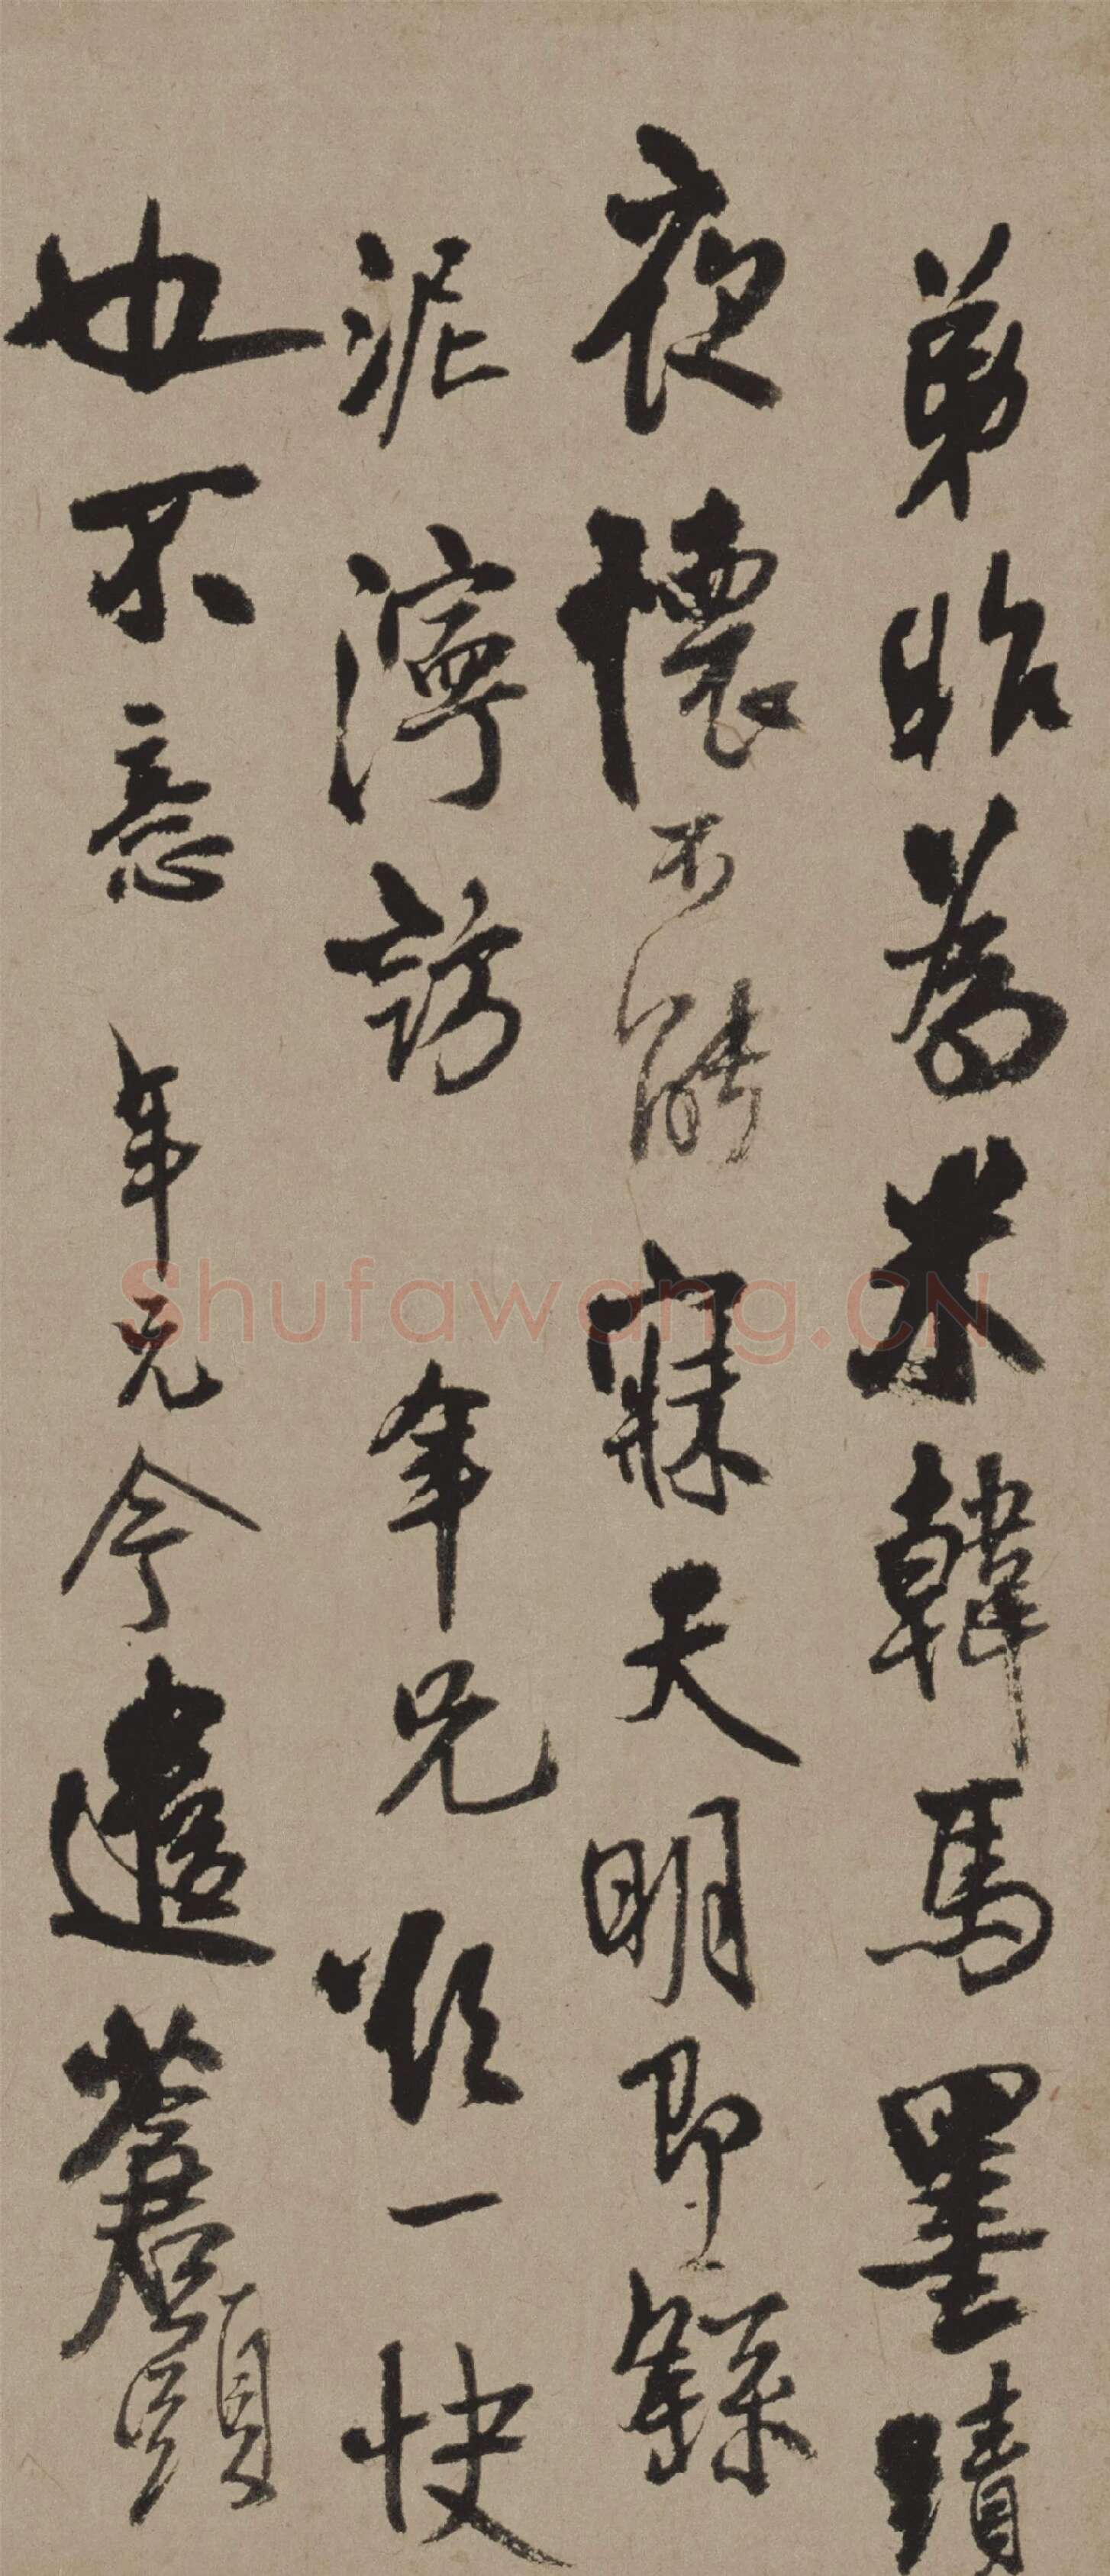 弟昨為米韓馬墨蹟
夜懷不能寐天明即繇
泥濘訪年兄欲一快
也不意年兄今遣蒼頭
Shufawang.CN